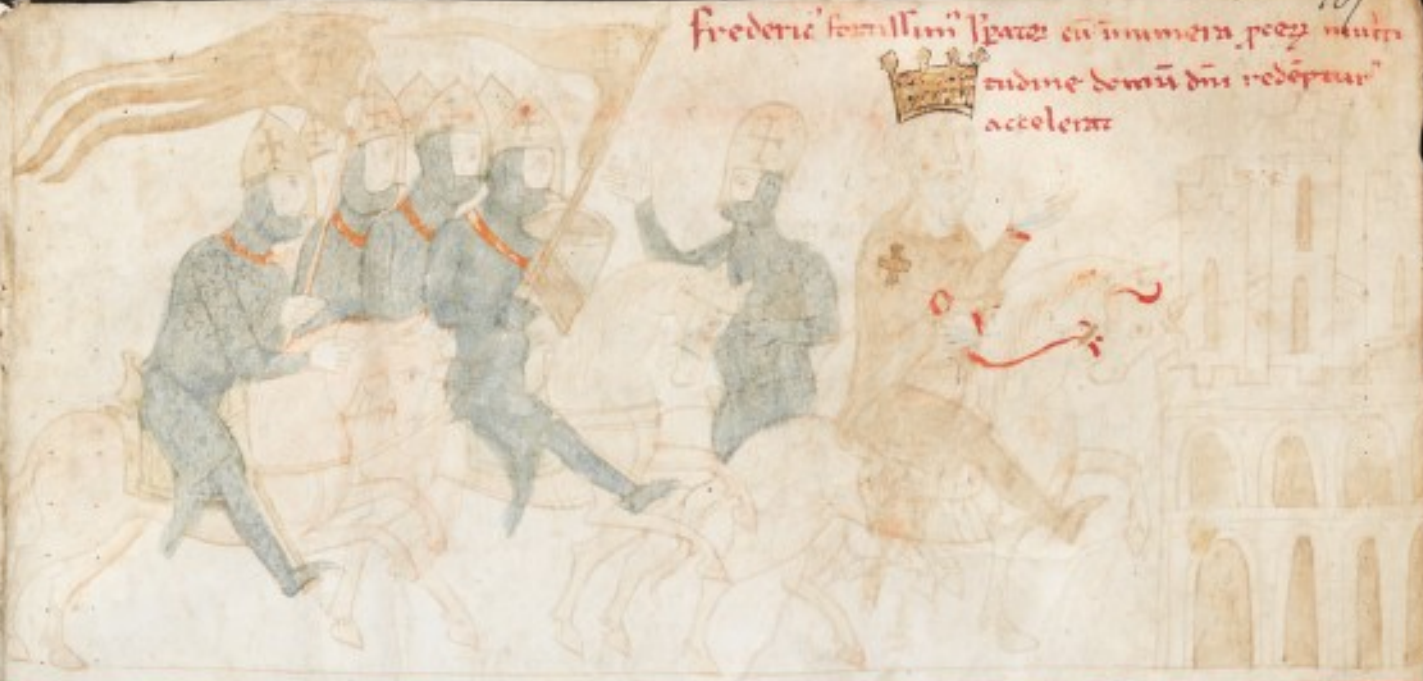 Frederic᾽ fortissim᾽ Īꝑator cū īnumera ꝓceꝝ multi
tudine domū dn̄i redēptur᾽
accelerat